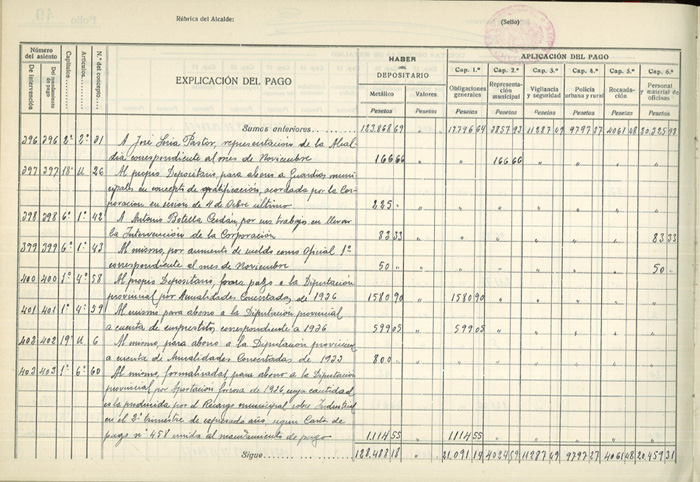 Rúbrica del Alcalde:
(Sello)
Número del asiento
De Intervención
Del mandamiento de pago
Capítulos
Artículos
N.º del concepto
EXPLICACIÓN DEL PAGO
HABER DEL DEPOSITARIO
Metálico Valores
Pesetas Pesetas
APLICACIÓN DEL PAGO
Cap. 1.º Cap. 2.º Cap. 3.º Cap. 4.º Cap. 5.º Cap. 6.º
Obligaciones generales Representación municipal Vigilancia y seguridad Policía urbana y rural Recaudación Personal y material de oficinas
Pesetas Pesetas Pesetas Pesetas Pesetas Pesetas
Sumas anteriores 123.868 69 " 17.796 64 3857 93 11287 49 9797 27 4061 48 20.325 98
396 396 2º 2º 31 A José Soria Pastor, representación de la Alcal-
día correspondiente al mes de Noviembre 166 66 " " 166 66 " " " "
397 397 18º U 26 Al propio Depositario, para abono a Guardias muni-
cipales en concepto de gratificación, acordada por la Cor-
poración en sesión de 4 de Octbre último 225 "
398 398 6º 1º 42 A Antonio Botella Cerdán, por su trabajo en llevar
la Intervención de la Corporación 83 33 " " " " " " 83 33
399 399 6º 1º 43 Al mismo, por aumento de sueldo como Oficial 1º
correspondiente al mes de Noviembre 50 " " " " " " " 50 "
400 400 1º 4º 58 Al propio Depositario, para pago a la Diputación
provincial por Anualidades Concertadas, de 1936 1580 90 " 1580 90 " " " " "
401 401 1º 4º 59 Al mismo para abono a la Diputación provincial
a cuenta de empréstitos, correspondiente a 1936 599 05 " 599 05 " " " " "
402 402 19º U 6 Al mismo, para abono a la Diputación provincial
a cuenta de Anualidades Concertadas de 1933 800 " " " " " " " "
403 403 1º 6º 60 Al mismo, formalizada, para abono a la Diputación
provincial por Aportación forzosa de 1936, cuya cantidad
es la producida por el Recargo municipal sobre Industrial
en el 3º trimestre de expresado año, según Carta de
pago nº 458 unida al mandamiento de pago 1.114 55 " 1114 55 " " " " "
Sigue 128.488 18 " 21.091 14 4024 59 11287 49 9797 27 4061 48 20.459 31